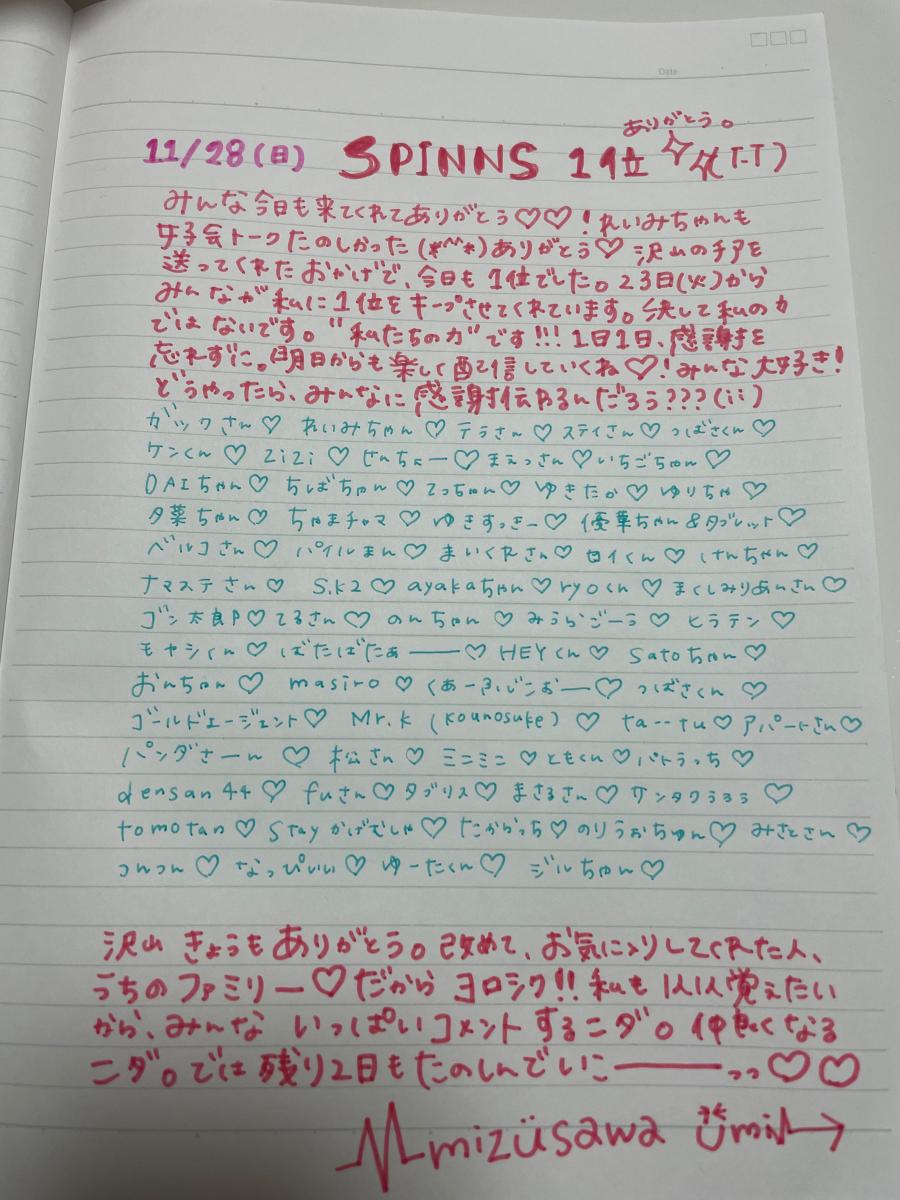 Date
ありがとう。
11/28(日) SPINNS 1位 (T-T)
みんな今日も来てくれてありがとう♡♡!れいみちゃんも
女子会トークたのしかった(*^^*)ありがとう♡ 沢山のチアを
送ってくれたおかげで、今日も1位でした。23日(火)から
みんなが私に1位をキープさせてくれています。決して私の力
ではないです。"私たちの力"です!!!1日1日、感謝を
忘れずに。明日からも楽しく配信していくね♡!みんな大好き!
どうやったら、みんなに感謝伝わるんだろう???(ii)
ガックさん♡ れいみちゃん♡ テラさん♡ スティさん♡ つばさくん♡
ケンくん♡ ZiZi♡ せんちょー♡ まえっさん♡ いちごちゃん♡
DAIちゃん♡ ちばちゃん♡ てっちゃん♡ ゆきたか♡ ゆりちゃ♡
夕葉ちゃん♡ ちゃまチャマ♡ ゆきすっきー♡ 優華ちゃん&タブレット♡
ベルコさん♡ パイルまん♡ まいくれさん♡ ロイくん♡ けんちゃん♡
ナマステさん♡ S.K2♡ ayakaちゃん♡ ryoくん♡ まくしみりあんさん♡
ゴン太郎P♡ てるさん♡ のんちゃん♡ みうらごーう♡ ヒラテン♡
モヤシくん♡ ばたばたぁ──♡ HEYくん♡ Satoちゃん♡
おんちゃん♡ masiro♡ くぁーふじこお─♡ つばさくん♡
ゴールドエージェント♡ Mr.k (kounosuke)♡ ta--tu♡ アパートさん♡
パンダさーん♡ 松さん♡ ミニミニ♡ ともくん♡ パトラっち♡
densan44♡ fuさん♡ タブリス♡ まさるさん♡ サンタクろろ♡
tomotan♡ Stay かげむしゃ♡ たからっち♡ のりうおちゅん♡ みさとさん♡
つんつん♡ なっぴぃぃ♡ ゆーたくん♡ ジルちゃん♡
沢山 きょうもありがとう。改めて、お気に入りしてくれた人、
うちのファミリー♡だから ヨロシク!!私も1人1人覚えたい
から、みんな いっぱいコメントするニダ。仲良くなる
ニダ。では残り2日もたのしんでいこ────っっ♡♡
mizüsawa ümi